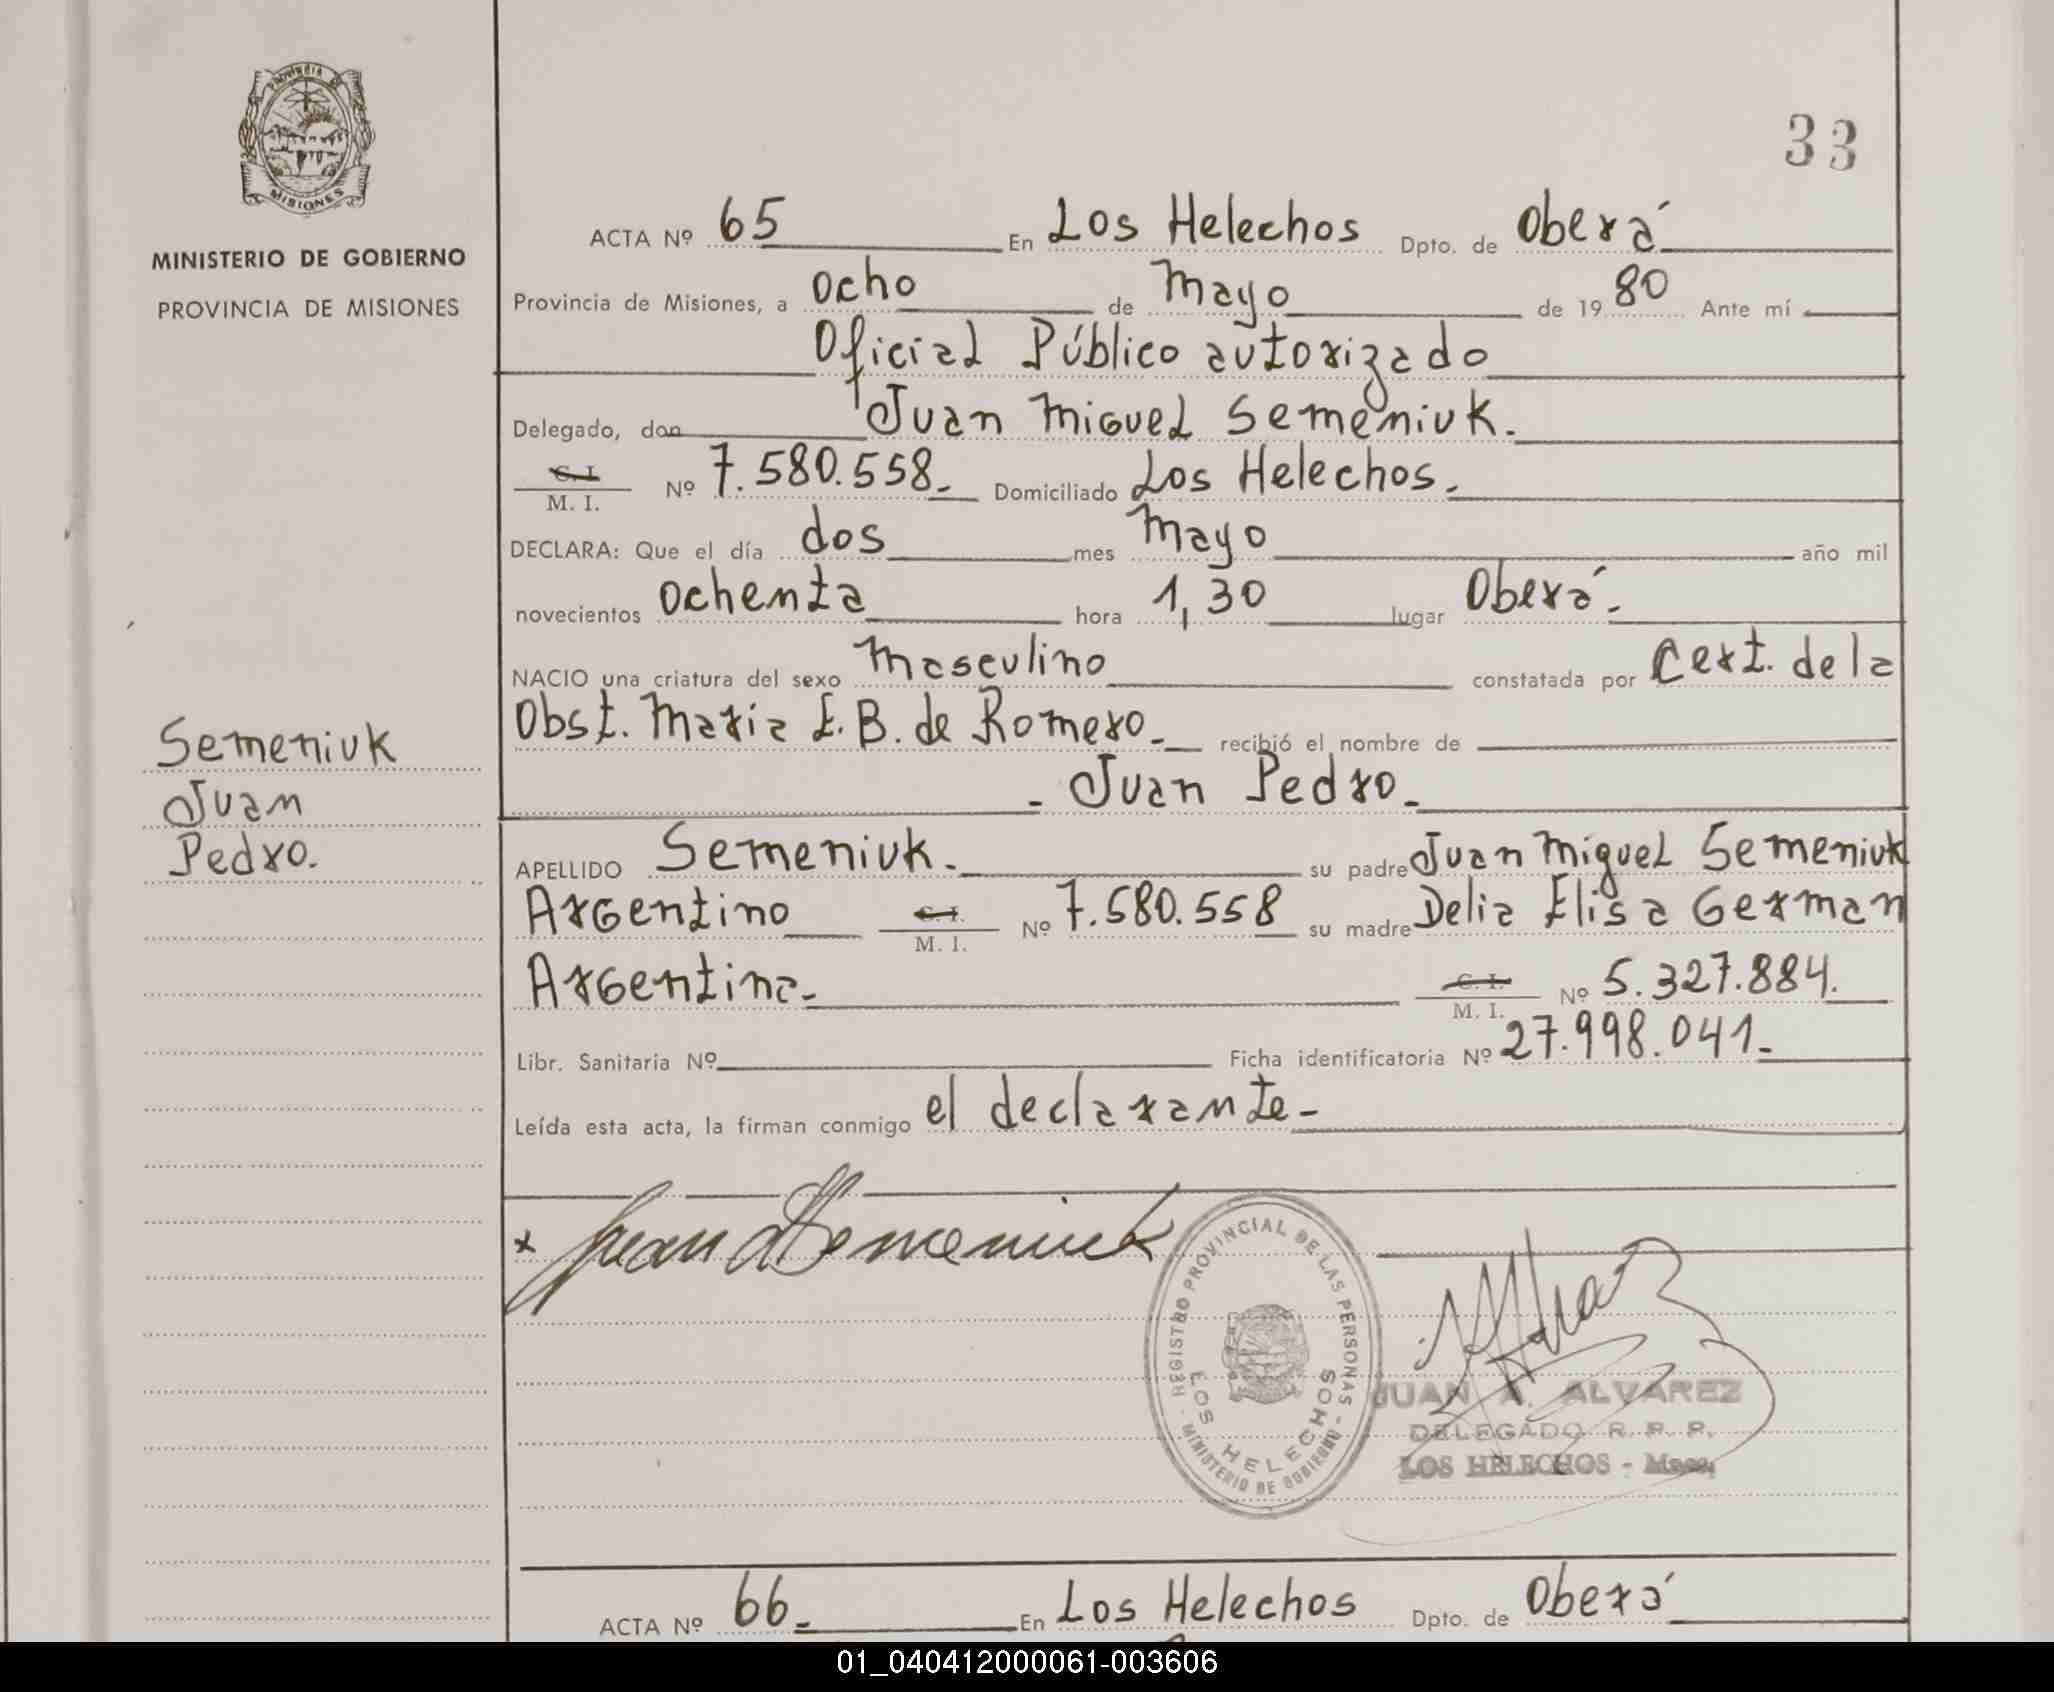 PROVINCIA DE
MISIONES
MINISTERIO DE GOBIERNO
PROVINCIA DE MISIONES
33
ACTA Nº 65 En Los Helechos Dpto. de Oberá
Provincia de Misiones, a ocho de Mayo de 1980 Ante mí
Oficial Público autorizado
Delegado, don Juan Miguel Semeniuk.
C. I.
M. I. Nº 7.580.558.- Domiciliado Los Helechos.
DECLARA: Que el día dos mes Mayo año mil
novecientos ochenta hora 1,30 lugar Oberá.
NACIO una criatura del sexo Masculino constatada por Cert. de la
Obst. Maria E. B. de Romero.- recibió el nombre de
- Juan Pedro.-
Semeniuk
Juan
Pedro.
APELLIDO Semeniuk. su padre Juan Miguel Semeniuk
Argentino C. I. M. I. Nº 7.580.558 su madre Delia Elisa German
Argentina.- C. I. M. I. Nº 5.327.884.
Libr. Sanitaria Nº Ficha identificatoria Nº 27.998.041.-
Leída esta acta, la firman conmigo el declarante-
x Juan M Semeniuk
REGISTRO PROVINCIAL DE LAS PERSONAS - MINISTERIO DE GOBIERNO -
LOS HELECHOS
JUAN A. ALVAREZ
DELEGADO R. P. P.
LOS HELECHOS - Mnes.
ACTA Nº 66.- En Los Helechos Dpto. de Oberá
01_040412000061-003606